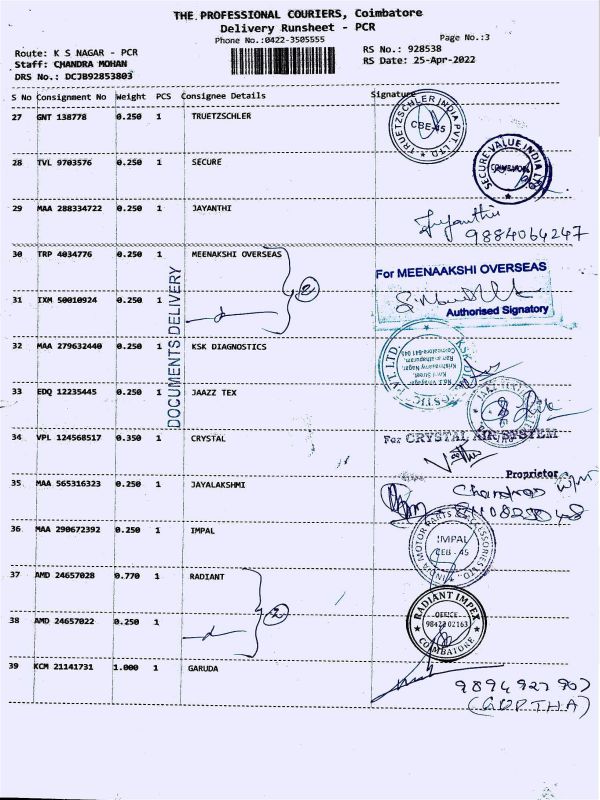 THE PROFESSIONAL COURIERS, Coimbatore
Delivery Runsheet - PCR
Phone No.:0422-3505555
Page No.:3
Route: K S NAGAR - PCR
Staff: CHANDRA MOHAN
DRS No.: DCJB92853803
RS No.: 928538
RS Date: 25-Apr-2022
S No Consignment No Weight PCS Consignee Details Signature
27 GNT 138778 0.250 1 TRUETZSCHLER
TRUETZSCHLER INDIA PVT. LTD.
CBE-45
28 TVL 9703576 0.250 1 SECURE
SECURE VALUE INDIA LTD
COIMBATORE
29 MAA 288334722 0.250 1 JAYANTHI
Jayanthi
9884064247
30 TRP 4034776 0.250 1 MEENAKSHI OVERSEAS
2
For MEENAAKSHI OVERSEAS
31 IXM 50010924 0.250 1
Authorised Signatory
DOCUMENTS DELIVERY
32 MAA 279632440 0.250 1 KSK DIAGNOSTICS
Krishnasamy Nagar,
Ramanathapuram
Coimbatore-641 045
33 EDQ 12235445 0.250 1 JAAZZ TEX
34 VPL 124568517 0.350 1 CRYSTAL
For CRYSTAL AIR SYSTEM
Proprietor
35 MAA 565316323 0.250 1 JAYALAKSHMI
36 MAA 290672392 0.250 1 IMPAL
INDIA MOTOR PARTS & ACCESSORIES LTD.
IMPAL
CEB - 45
37 AMD 24657028 0.770 1 RADIANT
2
RADIANT IMPEX
OFFICE
98422 02163
COIMBATORE
38 AMD 24657022 0.250 1
39 KCM 21141731 1.000 1 GARUDA
9894927907
(GOPTHA)